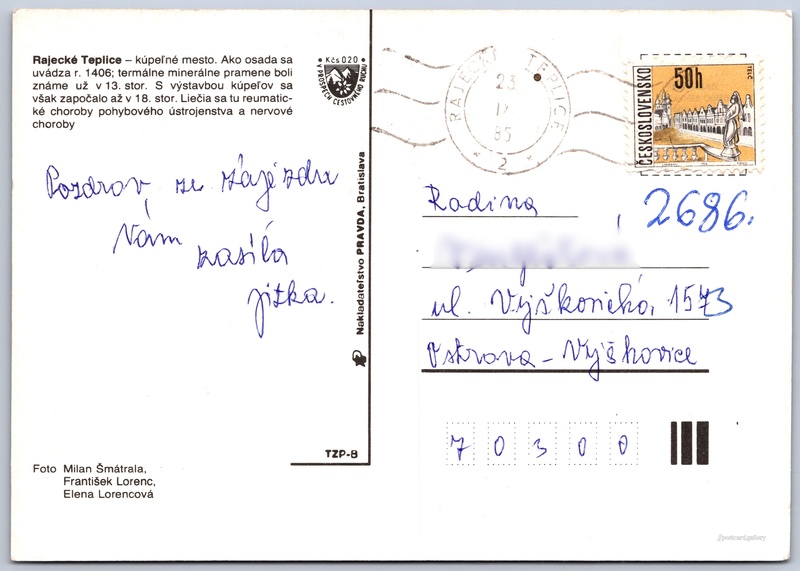 Rajecké Teplice – kúpeľné mesto. Ako osada sa
uvádza r. 1406; termálne minerálne pramene boli
známe už v 13. stor. S výstavbou kúpeľov sa
však započalo až v 18. stor. Liečia sa tu reumatic-
ké choroby pohybového ústrojenstva a nervové
choroby
Kčs 0.20
V PROSPECH CESTOVNÉHO RUCHU
RAJECKÉ TEPLICE
23
IX
85
2
50h
ČESKOSLOVENSKO
TELČ
Pozdrav ze zájezdu
Vám
zasílá
Jitka.
Nakladateľstvo PRAVDA, Bratislava
Radina
2686.
ul. Výškovická, 1573
Ostrava – Výškovice
70300
TZP-8
Foto Milan Šmátrala,
František Lorenc,
Elena Lorencová
//postcard.gallery